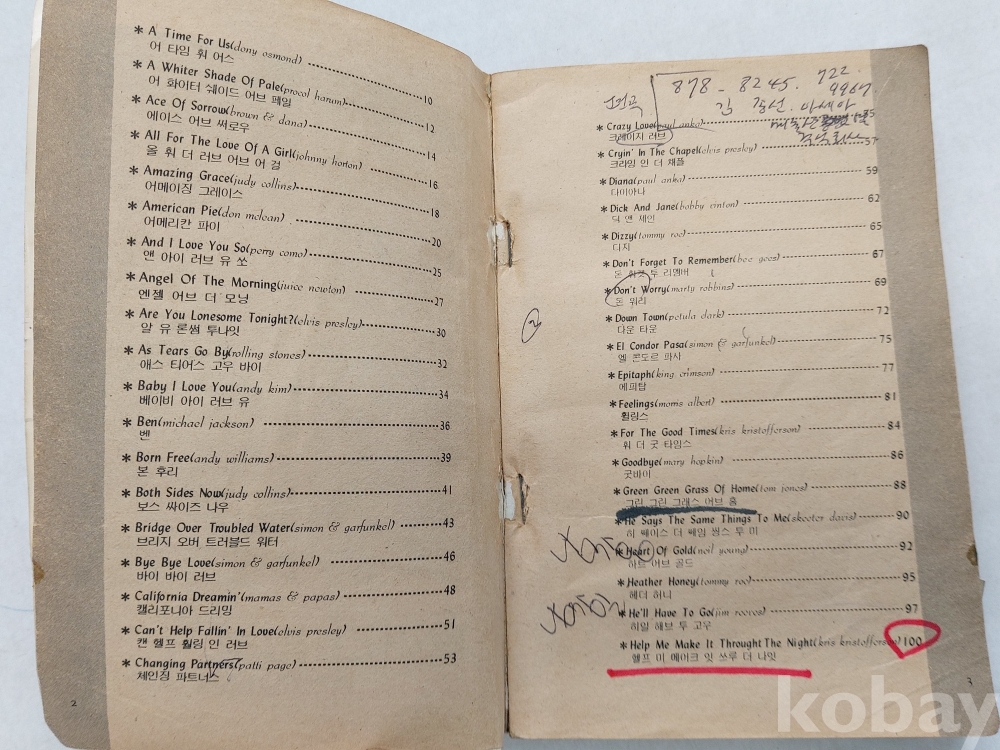 * A Time For Us(dony osmond)
어 타임 훠 어스
* A Whiter Shade Of Pale(procol harum) 10
어 화이터 쉐이드 어브 페일
* Ace Of Sorrow(brown & dana) 12
에이스 어브 써로우
* All For The Love Of A Girl(johnny horton) 14
올 훠 더 러브 어브 어 걸
* Amazing Grace(judy collins) 16
어메이징 그레이스
* American Pie(don mclean) 18
어메리칸 파이
* And I Love You So(perry como) 20
앤 아이 러브 유 쏘
* Angel Of The Morning(juice newton) 25
엔젤 어브 더 모닝
* Are You Lonesome Tonight?(elvis presley) 27
알 유 론썸 투나잇
30
* As Tears Go By(rolling stones) 32
애스 티어스 고우 바이
* Baby I Love You(andy kim) 34
베이비 아이 러브 유
* Ben(michael jackson) 36
벤
* Born Free(andy williams) 39
본 후리
* Both Sides Now(judy collins) 41
보스 싸이즈 나우
* Bridge Over Troubled Water(simon & garfunkel) 43
브리지 오버 트러블드 워터
* Bye Bye Love(simon & garfunkel) 46
바이 바이 러브
* California Dreamin'(mamas & papas) 48
캘리포니아 드리밍
* Can't Help Fallin' In Love(elvis presley) 51
캔 헬프 훨링 인 러브
* Changing Partners(patti page) 53
체인징 파트너스
2
878-8245. 722
9967
* Crazy Love(paul anka) 55
크레이지 러브
* Cryin' In The Chapel(elvis presley) 57
크라잉 인 더 채플
* Diana(paul anka) 59
다이아나
* Dick And Jane(bobby vinton) 62
딕 앤 제인
* Dizzy(tommy roe) 65
디지
* Don't Forget To Remember(bee gees) 67
돈 훠겟 투 리멤버
* Don't Worry(marty robbins) 69
돈 워리
* Down Town(petula dark) 72
다운 타운
* El Condor Pasa(simon & garfunkel) 75
엘 콘도르 파사
* Epitaph(king crimson) 77
에피탑
* Feelings(morris albert) 81
휠링스
* For The Good Times(kris kristofferson) 84
훠 더 굿 타임스
* Goodbye(mary hopkin) 86
굿바이
* Green Green Grass Of Home(tom jones) 88
그린 그린 그래스 어브 홈
* He Says The Same Things To Me(skeeter davis) 90
히 쎄이스 더 쎄임 씽스 투 미
* Heart Of Gold(neil young) 92
하트 어브 골드
* Heather Honey(tommy roe) 95
헤더 허니
* He'll Have To Go(jim reeves) 97
히일 해브 투 고우
* Help Me Make It Throught The Night(kris kristofferson) 100
헬프 미 메이크 잇 쓰루 더 나잇
3
2
kobay